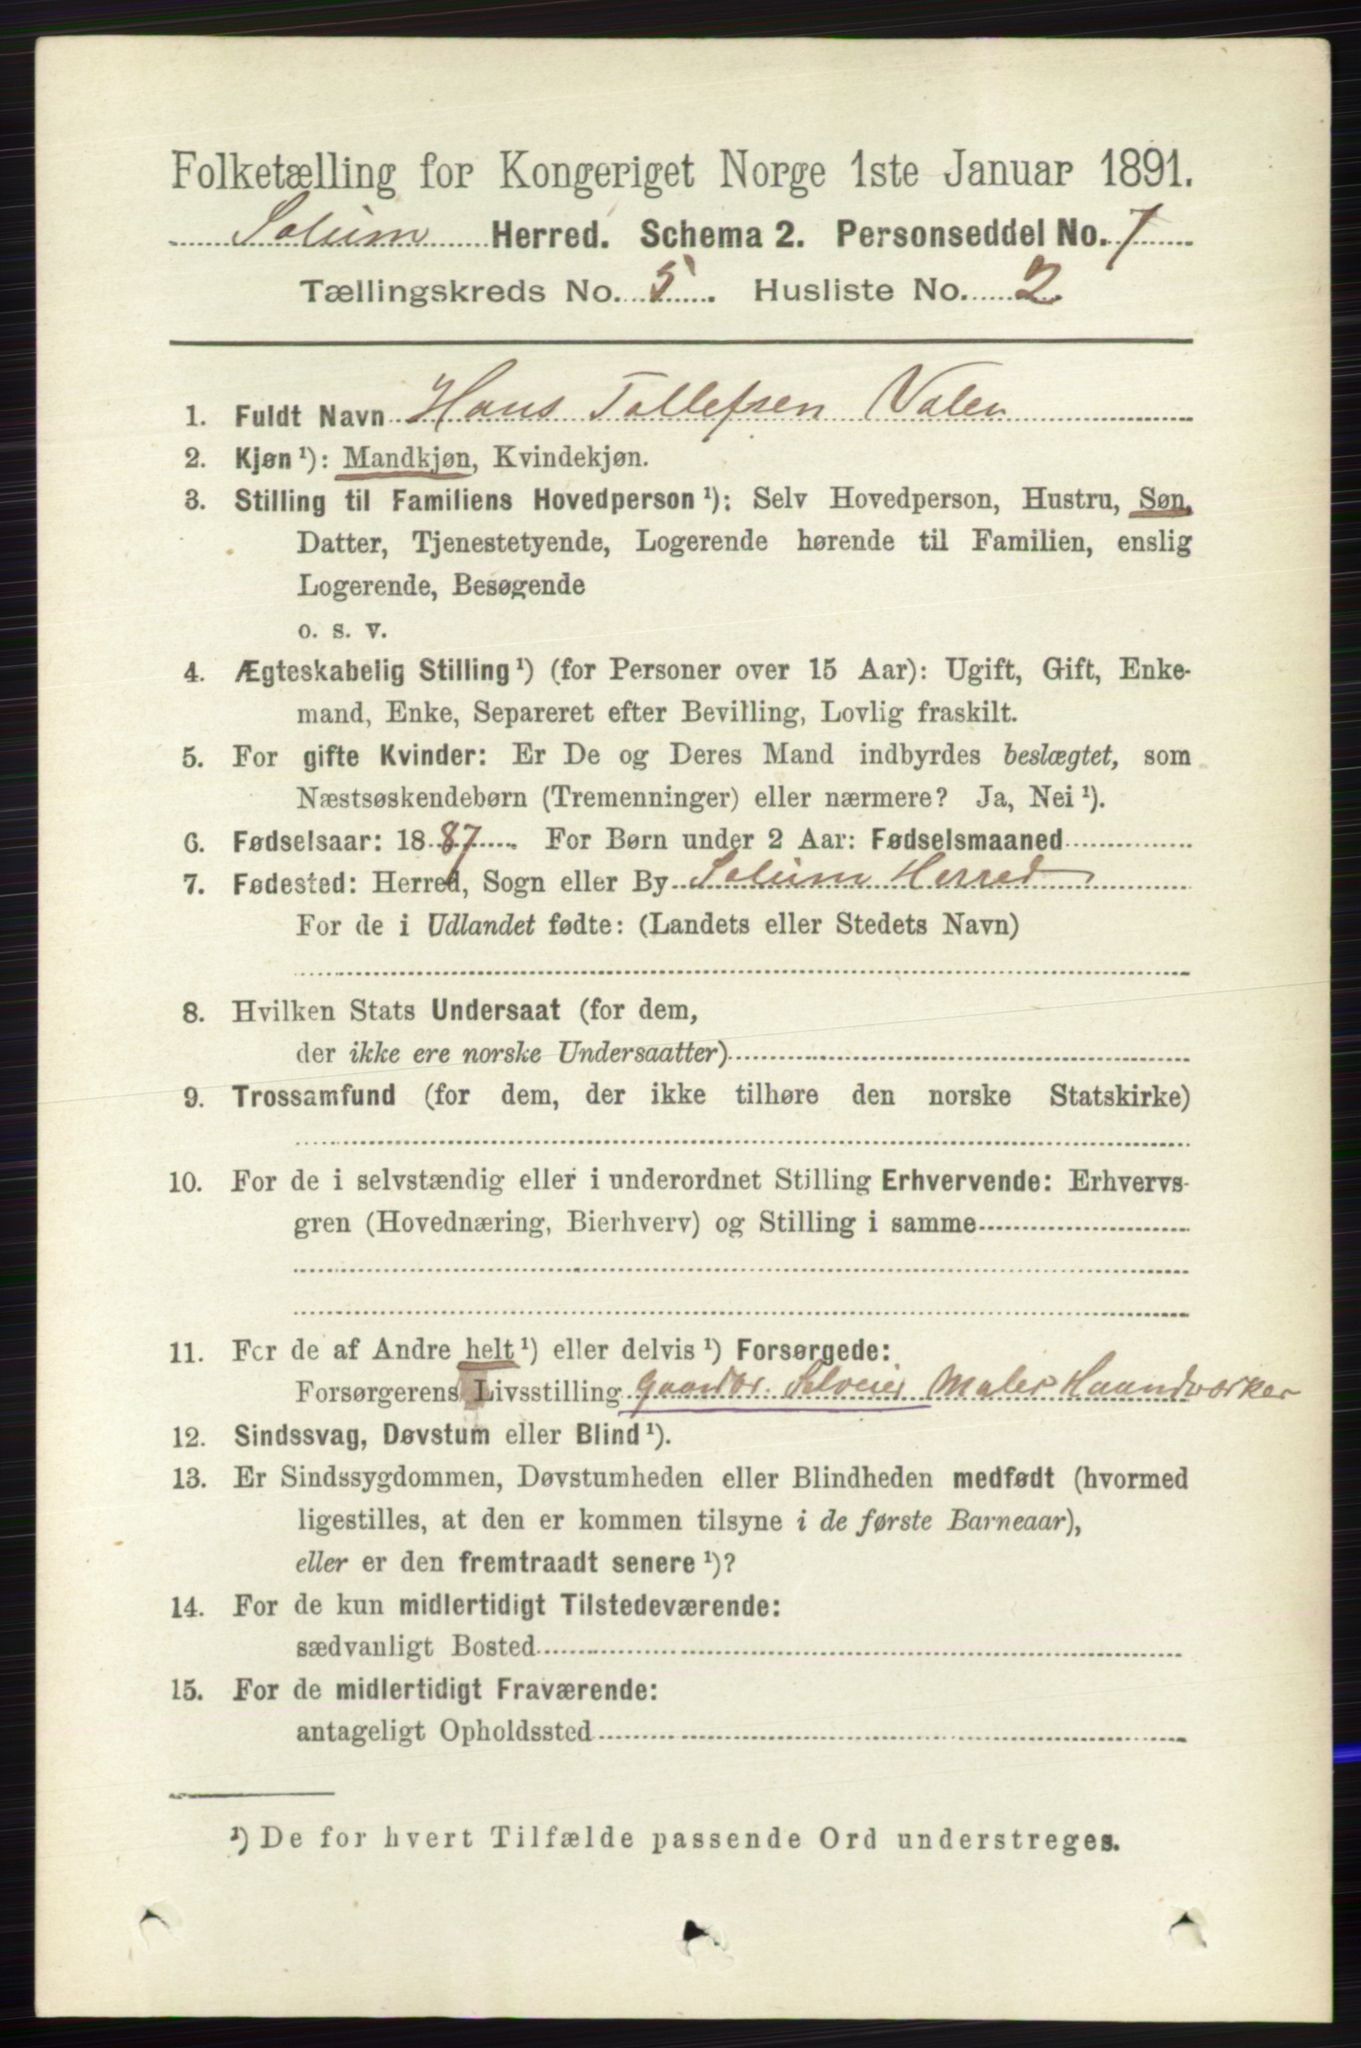 Folketælling for Kongeriget Norge 1ste Januar 1891.
Solum Herred. Schema 2. Personseddel No. 7
Tællingskreds No. 5. Husliste No. 2.
1. Fuldt Navn Hans Tollefsen Valen
2. Kjøn ¹): Mandkjøn, Kvindekjøn.
3. Stilling til Familiens Hovedperson ¹): Selv Hovedperson, Hustru, Søn,
Datter, Tjenestetyende, Logerende hørende til Familien, enslig
Logerende, Besøgende
o. s. v.
4. Ægteskabelig Stilling ¹) (for Personer over 15 Aar): Ugift, Gift, Enke-
mand, Enke, Separeret efter Bevilling, Lovlig fraskilt.
5. For gifte Kvinder: Er De og Deres Mand indbyrdes beslægtet, som
Næstsøskendebørn (Tremenninger) eller nærmere? Ja, Nei ¹).
6. Fødselsaar: 1887. For Børn under 2 Aar: Fødselsmaaned
7. Fødested: Herred, Sogn eller By Solum Herred
For de i Udlandet fødte: (Landets eller Stedets Navn)
8. Hvilken Stats Undersaat (for dem,
der ikke ere norske Undersaatter)
9. Trossamfund (for dem, der ikke tilhøre den norske Statskirke)
10. For de i selvstændig eller i underordnet Stilling Erhvervende: Erhvervs-
gren (Hovednæring, Bierhverv) og Stilling i samme
11. For de af Andre helt ¹) eller delvis ¹) Forsørgede:
Forsørgerens Livsstilling Gaardbr. Selveier Maler Haandværker
12. Sindssvag, Døvstum eller Blind ¹).
13. Er Sindssygdommen, Døvstumheden eller Blindheden medfødt (hvormed
ligestilles, at den er kommen tilsyne i de første Barneaar),
eller er den fremtraadt senere ¹)?
14. For de kun midlertidigt Tilstedeværende:
sædvanligt Bosted
15. For de midlertidigt Fraværende:
antageligt Opholdssted
¹) De for hvert Tilfælde passende Ord understreges.